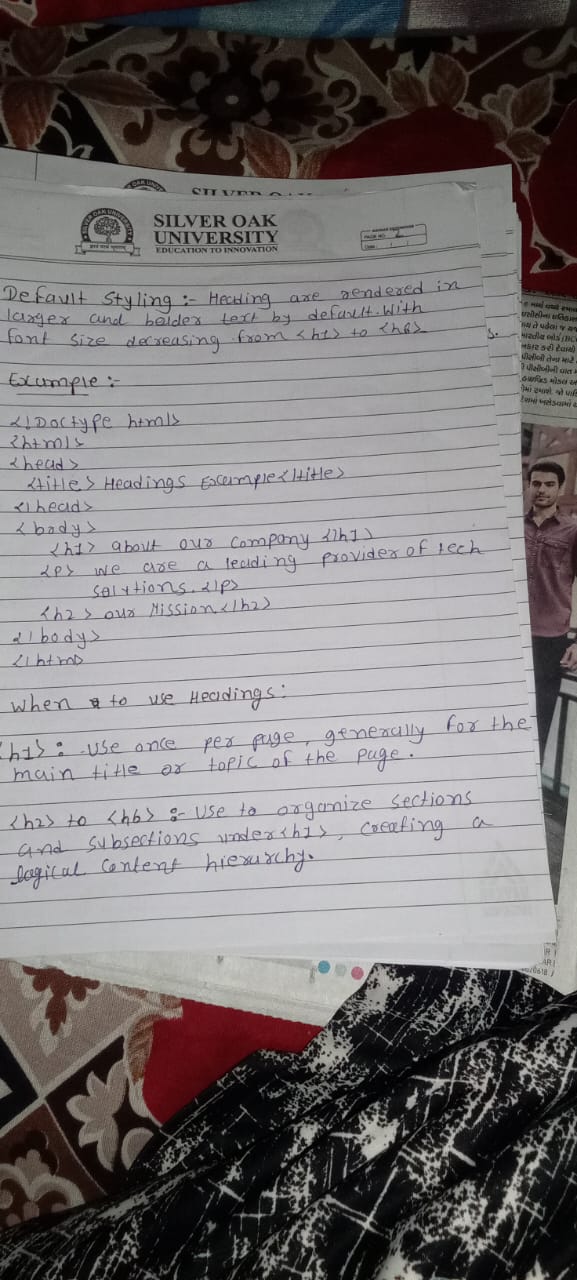 SILVER OAK
UNIVERSITY
EDUCATION TO INNOVATION
PAGE NO.
Date:
Default Styling :- Heading are rendered in
larger and bolder text by default. With
font size decreasing from <h1> to <h6>
Example :-
<!Doctype html>
<html>
<head>
<title> Headings Example </title>
</head>
<body>
<h1> about our company </h1>
<p> we are a leading provider of tech
solutions. </p>
<h2> our Mission </h2>
</body>
</html>
When to use Headings:
<h1> : - Use once per page, generally for the
main title or topic of the page.
<h2> to <h6> :- Use to organize sections
and subsections under <h1>, creating a
logical content hierarchy.